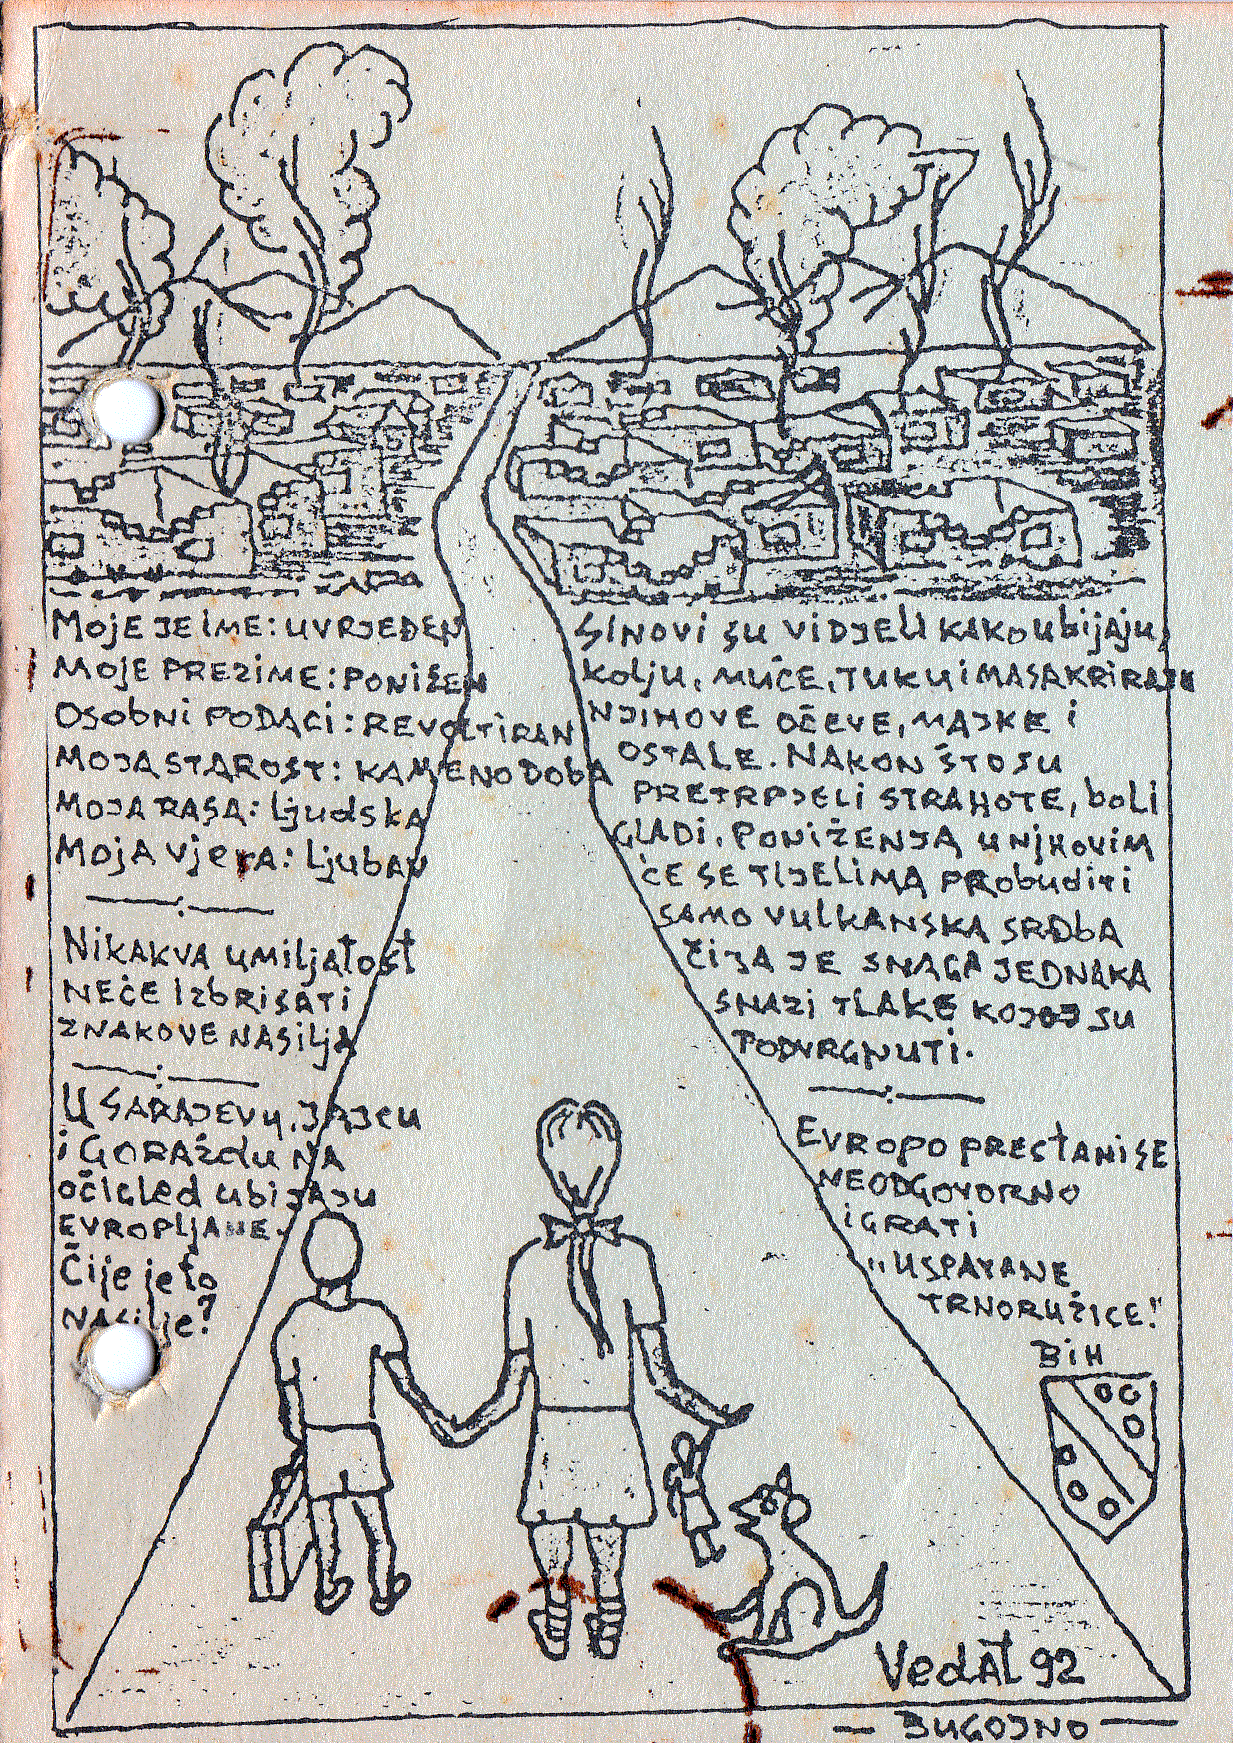 MOJE JE IME: UVRJEĐEN
MOJE PREZIME: PONIŽEN
OSOBNI PODACI: REVOLTIRAN
MOJA STAROST: KAMENO DOBA
MOJA RASA: ljudska
MOJA vjera: ljubav
Nikakva umiljatost
NEĆE IZBRISATI
ZNAKOVE NASILJA
U SARAJEVU, JAJCU
i GORAŽDU NA
OČIGLED UBIJAJU
EVROPLJANE.
Čije je to
NASILJE?
SINOVI SU VIDJELI KAKO UBIJAJU,
KOLJU, MUČE, TUKU I MASAKRIRAJU
NJIHOVE OČEVE, MAJKE I
OSTALE. NAKON ŠTO SU
PRETRPJELI STRAHOTE, BOLI
GLADI, PONIŽENJA U NJIHOVIM
ĆE SE TIJELIMA PROBUDITI
SAMO VULKANSKA SRDBA
ČIJA JE SNAGA JEDNAKA
SNAZI TLAKE KOJOJ SU
PODVRGNUTI.
EVROPO PRESTANI SE
NEODGOVORNO
IGRATI
"USPAVANE
TRNORUŽICE!"
BiH
Vedat 92
— BUGOJNO —